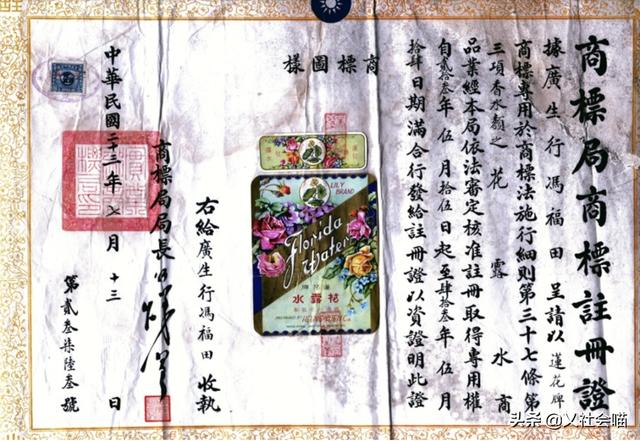 商標局商標註冊證
據廣生行馮福田呈請以蓮花牌
商標專用於商標法施行細則第三十七條第
三項香水類之花露水商
品業經本局依法審定核准註冊取得專用權
自貳拾叁年伍月拾伍日起至肆拾叁年伍月
拾肆日期滿合行發給註冊證以資證明此證
商標圖樣
LILY
BRAND
Florida
Water
花露水
右給廣生行馮福田收執
商標局局長
中華民國二十三年七月十三日
第貳叁柒陸叁號
头条 @乂社会喵